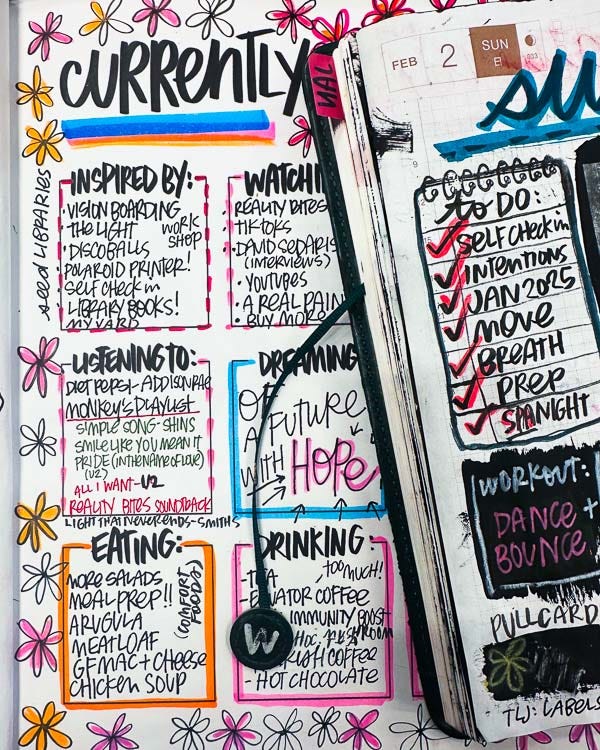 CURRENTLY
seed LIBRARIES
INSPIRED BY:
• VISION BOARDING
• THE LIGHT WORK SHOP
• DISCO BALLS
• POLAROID PRINTER!
• SELF CHECK in
• LIBRARY BOOKS!
MY YARD
REALITY BITES
• TIKTOKS
• DAVID SEDARIS
(INTERVIEWS)
• YOUTUBES
• A REAL PAIN
• BUY MORE
LISTENING TO:
DIET PEPSI - ADDISON RAE
MONKEY'S PLAYLIST
SIMPLE SONG - SHINS
SMILE LIKE YOU MEAN IT
PRIDE (IN THE NAME OF LOVE)
(U2)
ALL I WANT - U2
REALITY BITES SOUNDTRACK
LIGHT THAT NEVER ENDS - SMITHS
DREAMING
OF
A FUTURE
WITH HOPE
EATING:
MORE SALADS
MEAL PREP!!
ARUGULA
MEATLOAF
GF MAC + CHEESE
CHICKEN SOUP
DRINKING:
TOO MUCH!
COFFEE
IMMUNITY BOOST
COFFEE
- HOT CHOCOLATE
W
JAN
FEB 2 SUN
033
9
to DO:
SELF CHECK in
INTENTIONS
JAN 2025
MOVE
BREATH
PREP
SPA NIGHT
WORKOUT:
DANCE +
BOUNCE
PULL CARD
TLJ: LABELS